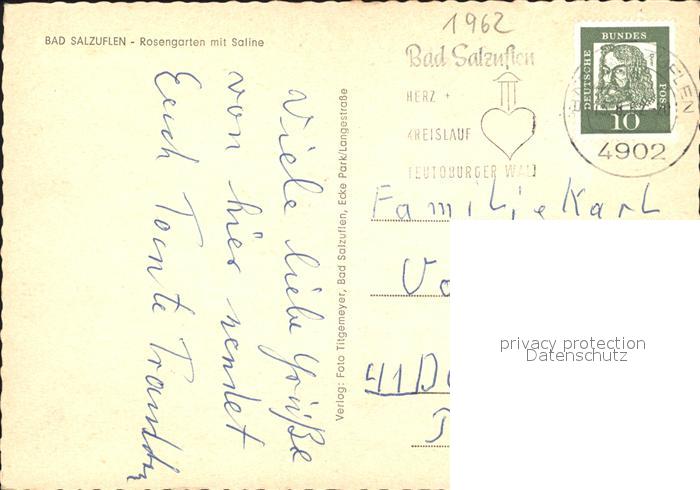 BAD SALZUFLEN - Rosengarten mit Saline
Viele liebe Grüße
von hier sendet
Euch Tante
Verlag: Foto Titgemeyer, Bad Salzuflen, Ecke Park/Langestraße
1962
Bad Salzuflen
HERZ +
KREISLAUF
TEUTOBURGER WALD
DEUTSCHE BUNDES POST
10
4902
Familie Karl
Vo
41 Du
privacy protection
Datenschutz